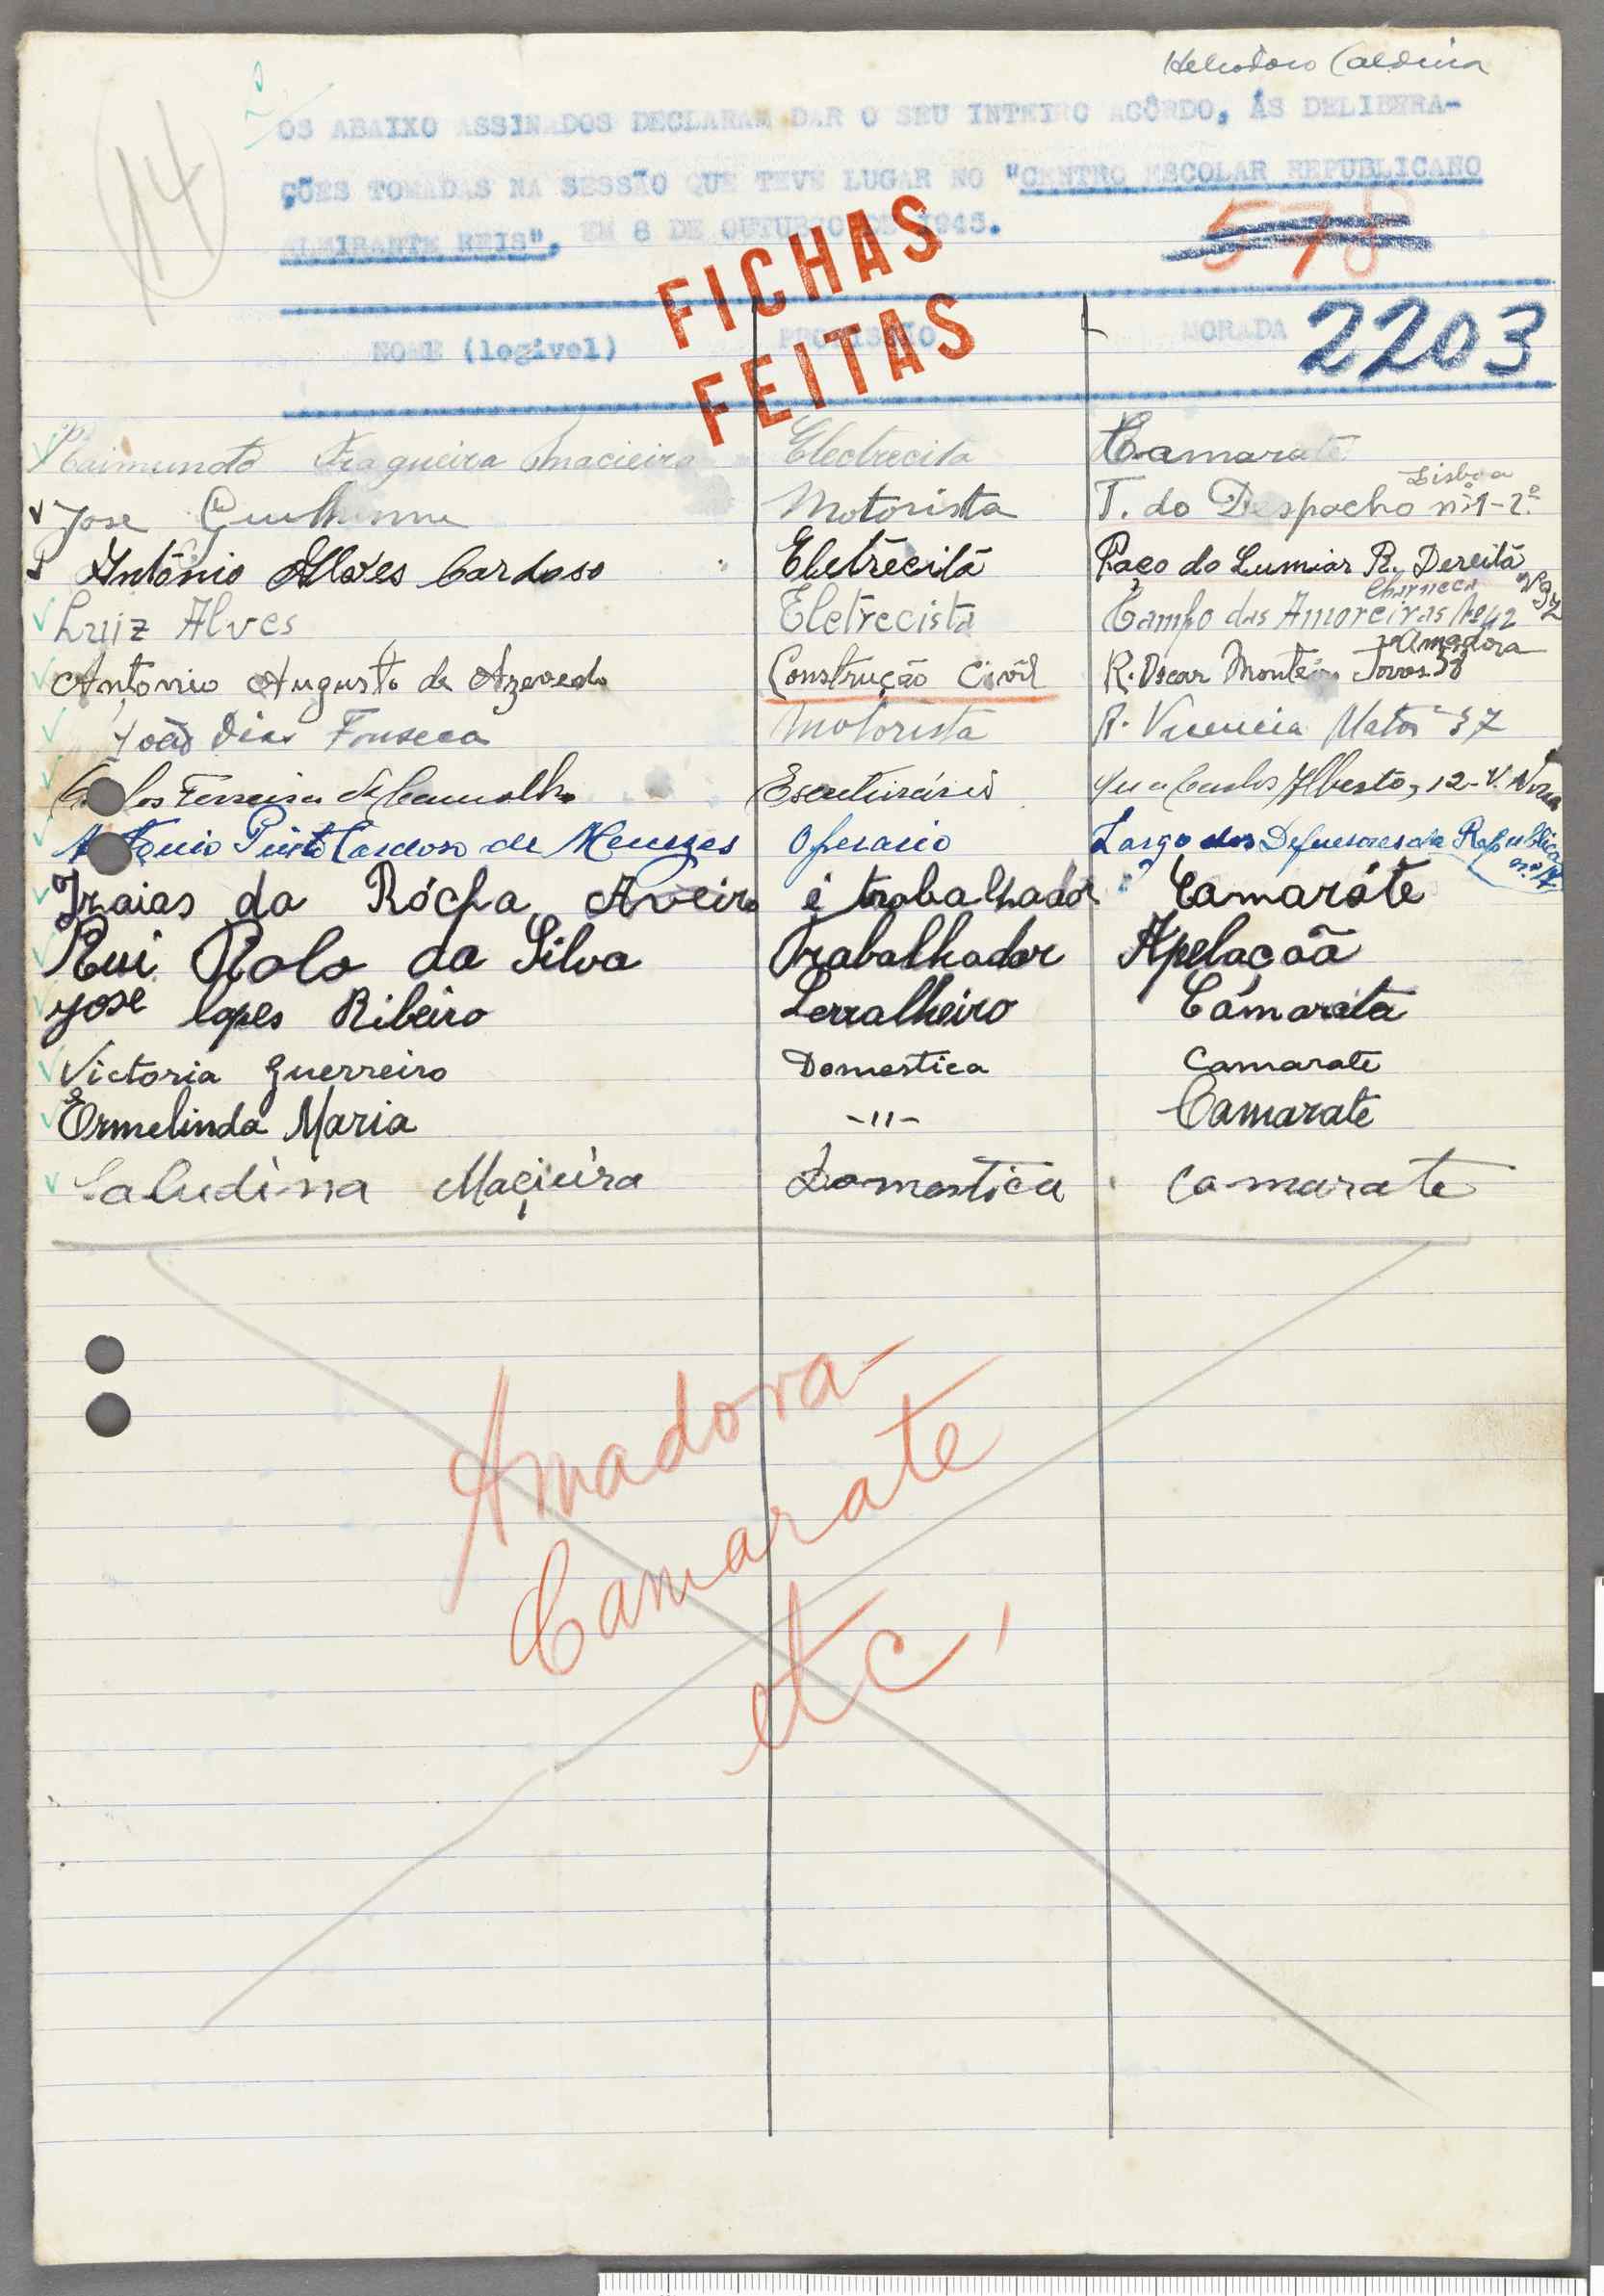 Heliodoro Caldeira
14
OS ABAIXO ASSINADOS DECLARAM DAR O SEU INTEIRO ACÔRDO, ÁS DELIBERA-
ÇÕES TOMADAS NA SESSÃO QUE TEVE LUGAR NO "CENTRO ESCOLAR REPUBLICANO
578
ALMIRANTE REIS", EM 8 DE OUTUBRO DE 1945.
FICHAS
FEITAS
NOME (legivel) PROFISSÃO MORADA 2203
Raimundo Fragueira Macieira Electrecista Camarate
Jose Guilherme Motorista T. do Despacho nº1-2º Lisboa
António Alves Cardoso Eletrecitá Paço do Lumiar R. Dereitá Nº 97
Luiz Alves Eletrecista Campo das Amoreiras Nº 42 Charneca
Antonio Augusto de Azevedo Construção Civil R. Oscar Monteiro Torres 38 Amadora
João Dias Fonseca Motorista R. Matos 37
Carlos Ferreira de Carvalho Escriturário Rua Carlos Alberto, 12-V. Nova
António Pinto Cardoso de Menezes Operario Largo dos Defensores da Republica
Izaias da Rócha Aveiro é trabalhador Camaráte
Rui Rolo da Silva Trabalhador Apelação
Jose lopes Ribeiro Serralheiro Cámarata
Victoria Guerreiro Domestica Camarate
Ormelinda Maria -11- Camarate
Saludina Maçieira Domestica Camarate
Amadora-
Camarate
etc,